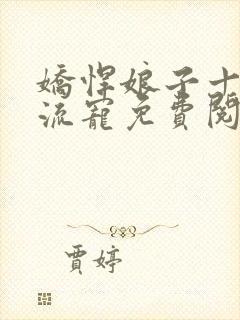 嬌悍娘子十
流寵免費閱
賈婷